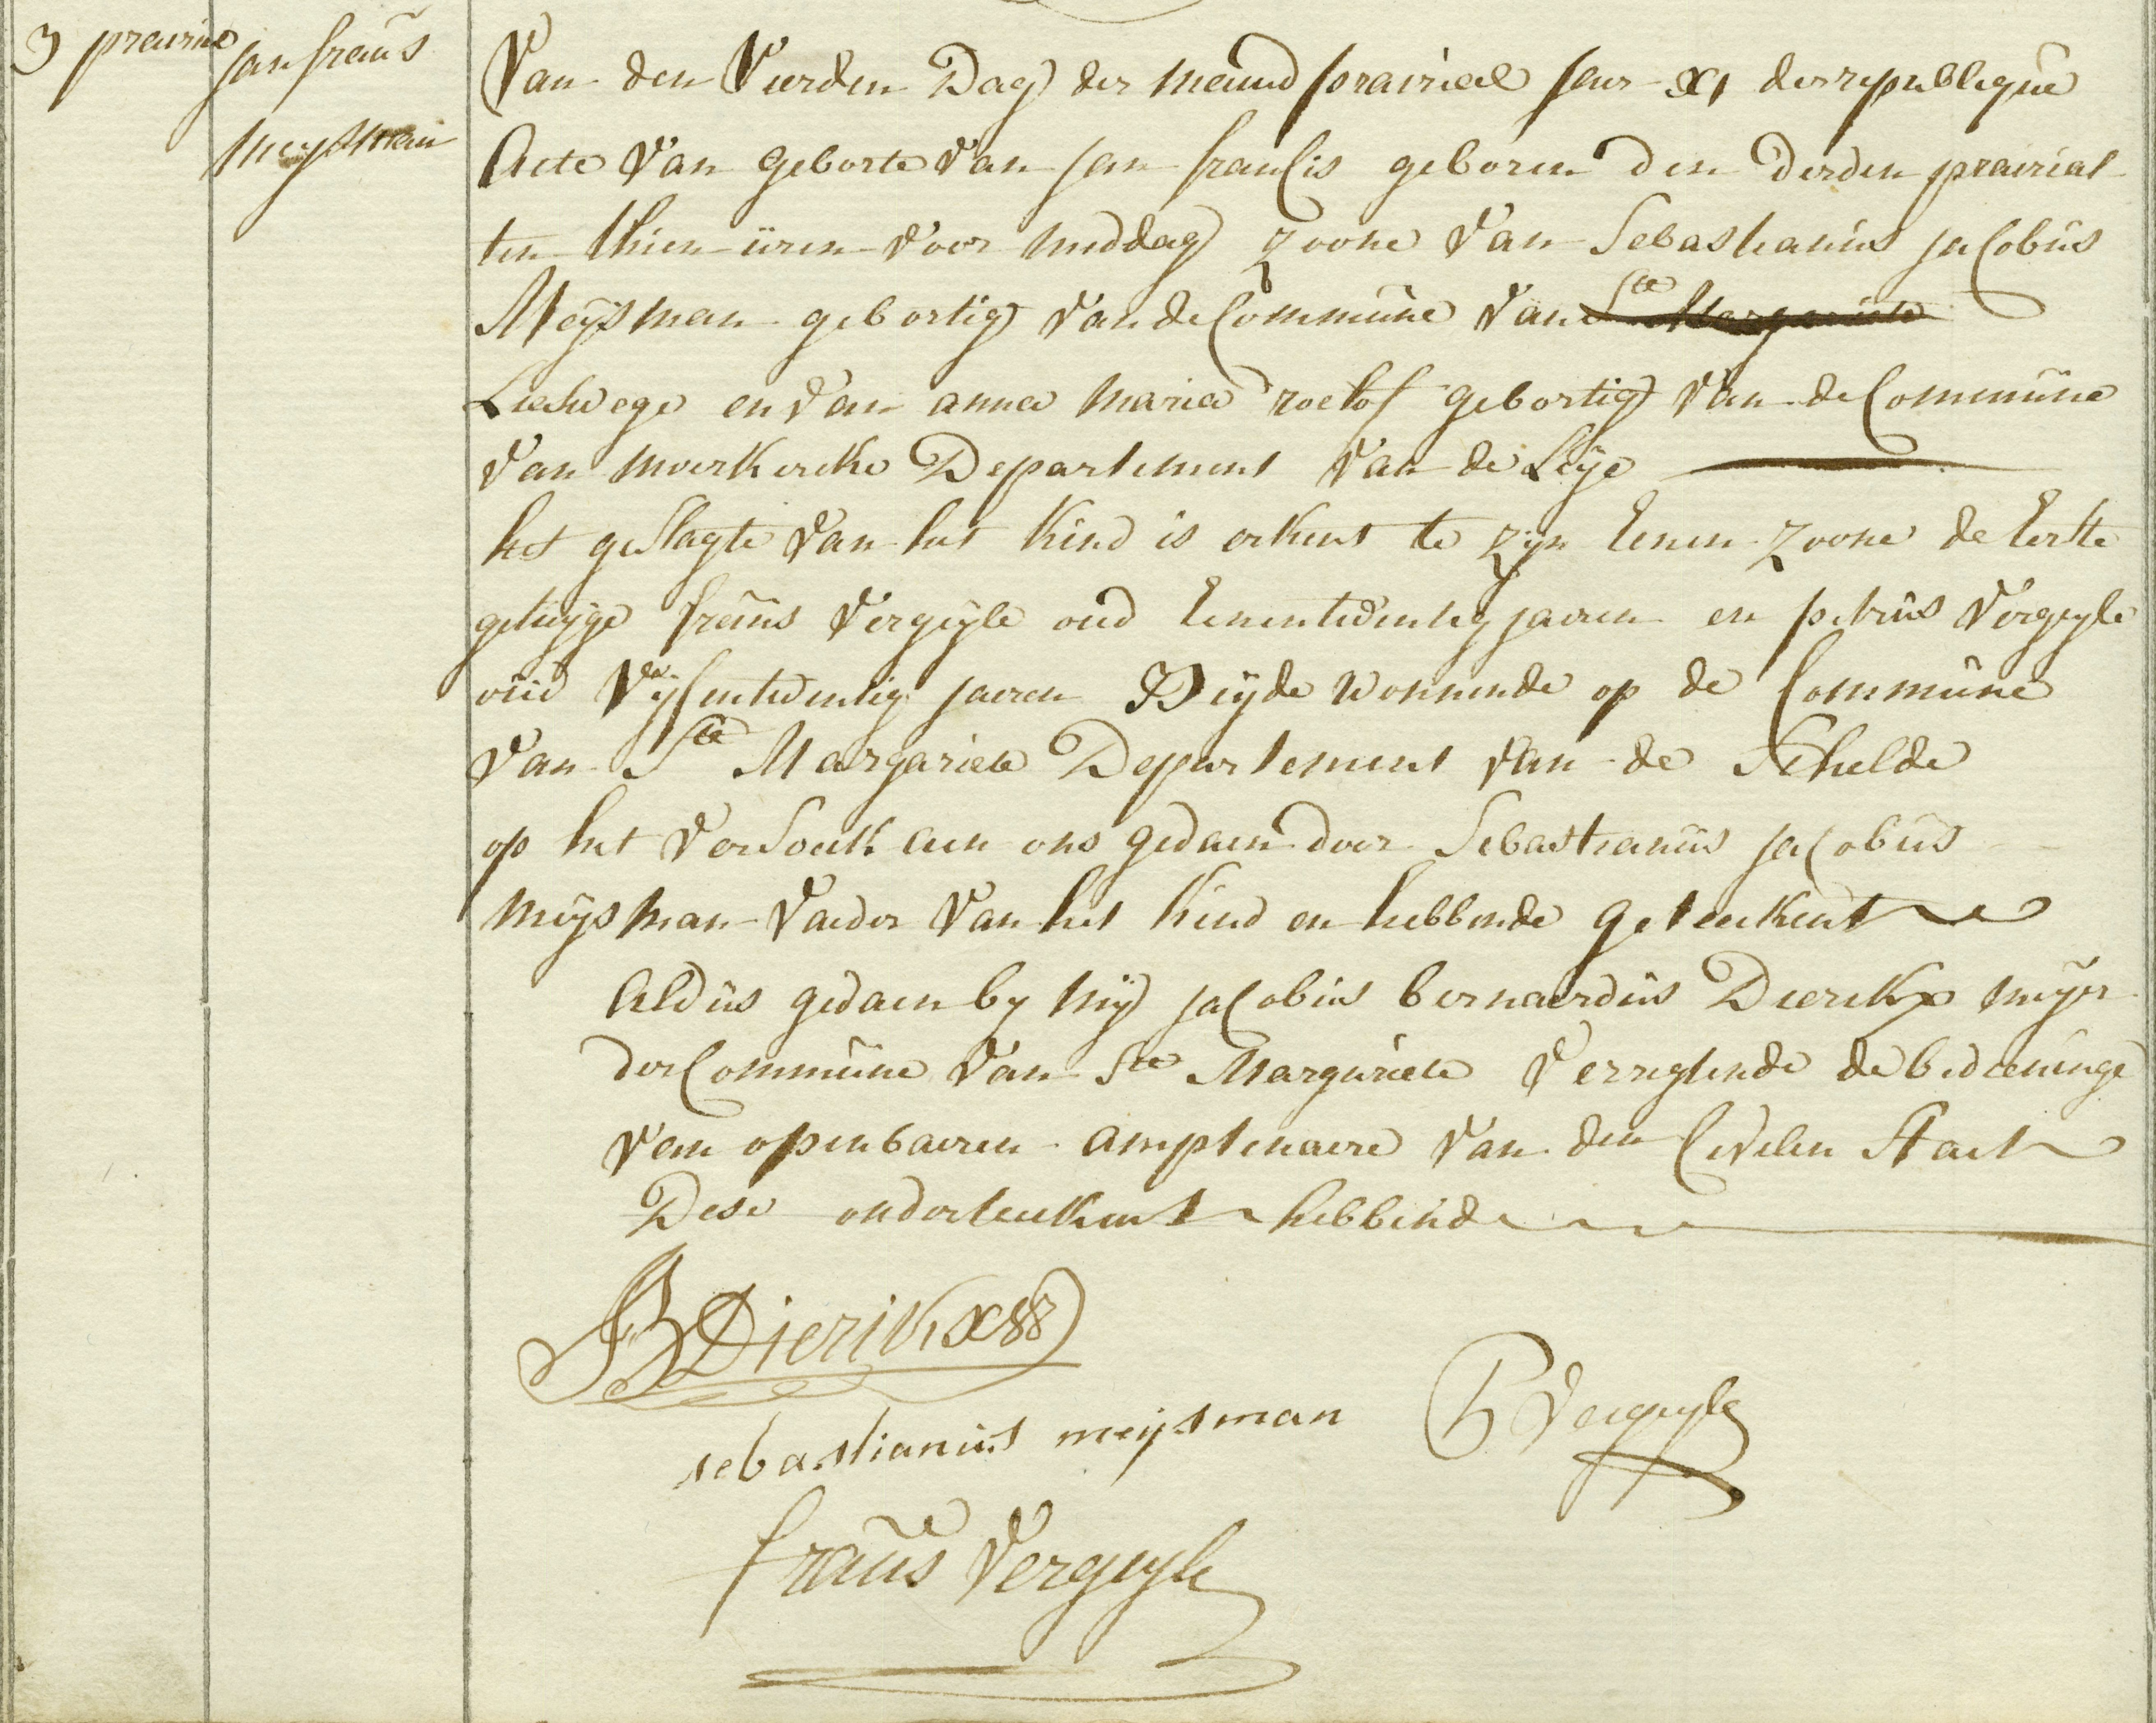 3 prairial
jan frans̃
meysman
Van den Vierden Dag der maend prairiael jaer XI der republique
Acte Van geborte Van jan fransis geboren den derden prairial
ten thien üren voor middag zoone Van Sebastianus jacobüs
Meÿsman gebortig Van de Commüne Van Ste Margariete
Liedwege en Van anna maria roelof gebortig Van de Commüne
Van moerkercke Departement Van de Leÿe
het geslagte Van het kind is erkent te zijn Eenen zoone de Eerste
getuyge frans̃ Vergeyle oud Eenentwentig jaeren en petrus Vergeyle
oüd Vyfentwentig jaeren Beÿde wonnende op de Commüne
Van Ste Margariete Departement Van de Schelde
op het Versoek aen ons gedaen door Sebastianüs jacobüs
meÿsman Vader Van het kind en hebbende geteekent
Aldüs gedaen by mÿ jacobus bernaerdüs Dierickx meÿer
der Commüne Van Ste Margariete Verregtende de bedieninge
Van openbaeren amptenaere Van den Civilen Staet
Dese onderteekent hebbende
JB Dierickx
sebastianus meijsman
P Vergeyle
frans̃ Vergeyle